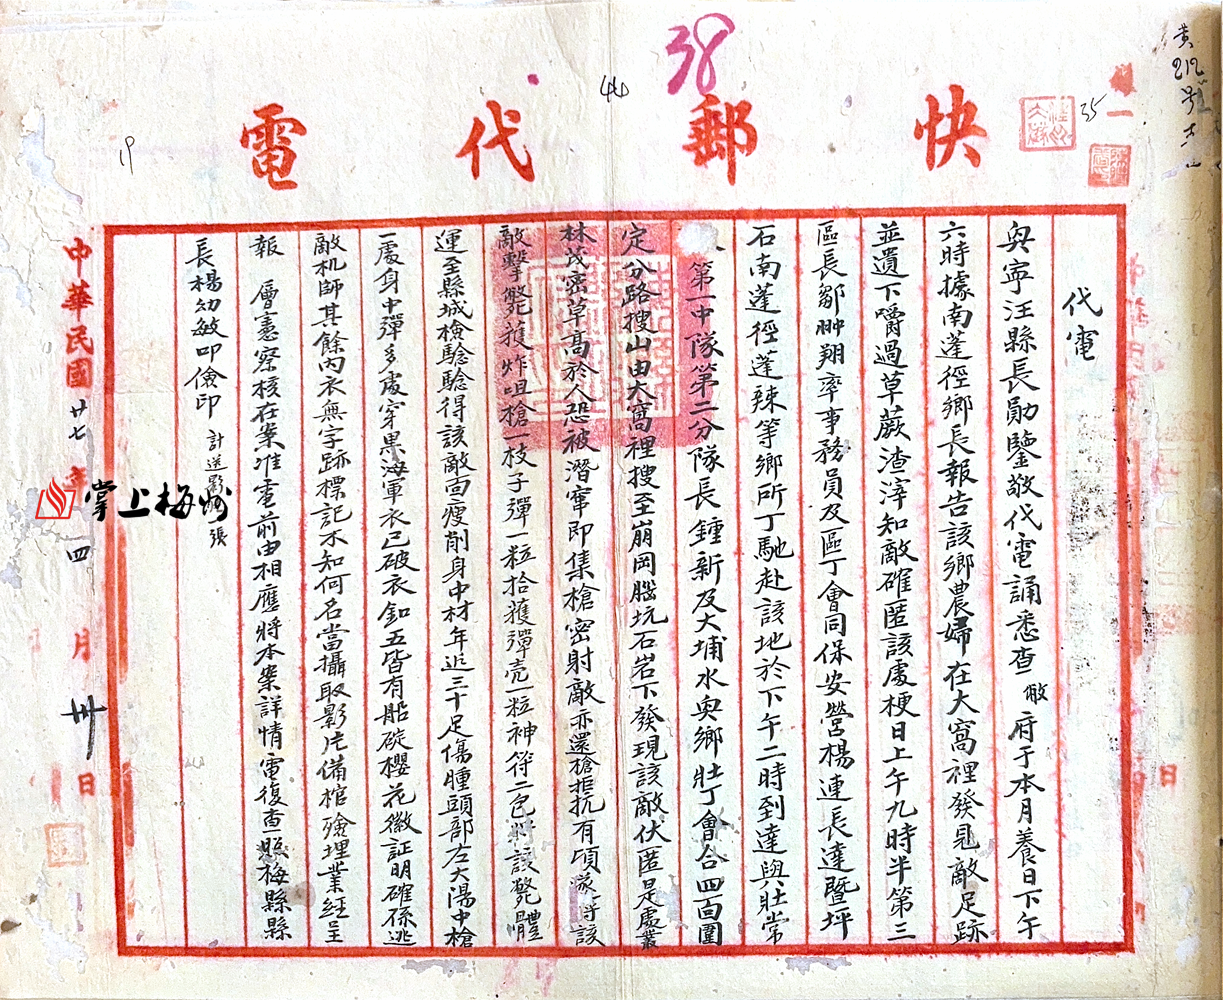 快郵代電
代電
興寧汪縣長勛鑒敬代電誦悉查敝府于本月養日下午
六時據南蓬徑鄉長報告該鄉農婦在大窩裡發見敵足跡
並遺下嚼過草蕨渣滓知敵確匿該處梗日上午九時半第三
區長鄒翀翔率事務員及區丁會同保安營楊連長達暨坪
石南蓬徑蓬辣等鄉所丁馳赴該地於下午二時到達與壯常
第一中隊第二分隊長鍾新及大埔水興鄉壯丁會合四面圍
定分路搜山由大窩裡搜至崩岡膉坑石岩下發現該敵伏匿是處叢
林茂密草高於人恐被潛竄即集槍密射敵亦還槍抵抗有頃遂將該
敵擊斃獲炸咀槍一枝子彈一粒拾獲彈壳一粒神符二包將該斃體
運至縣城檢驗驗得該敵面瘦削身中材年近三十足傷腫頭部左大湯中槍
一處身中彈多處穿黑海軍衣已破衣釦五皆有船碇櫻花徽証明確係逃
敵机師其餘內衣無字跡標記不知何名當攝取影片備棺殮埋業經呈
報 層憲察核在案准電前由相應將本案詳情電復查照梅縣縣
長楊幼敏叩儉印 計送影片 張
中華民國廿七年四月卅日
掌上梅州
38
44
35
19